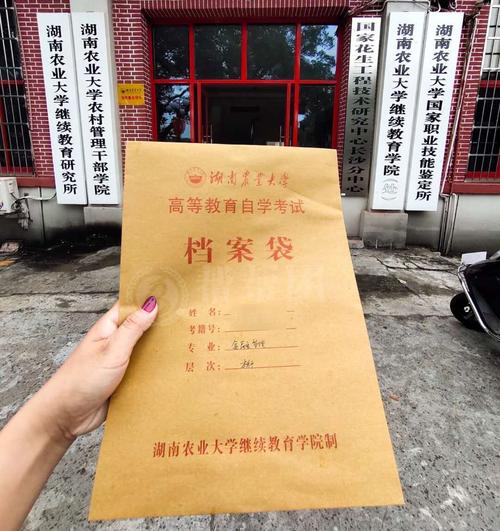 湖南农业大学继续教育研究所
湖南农业大学农村管理干部学院
国家花生工程技术研究中心长沙分中心
湖南农业大学继续教育学院(处)
湖南农业大学国家职业技能鉴定所
湖南农业大学
高等教育自学考试
档案袋
姓名:
考籍号:
专业: 金融管理
层次:
湖南农业大学继续教育学院制